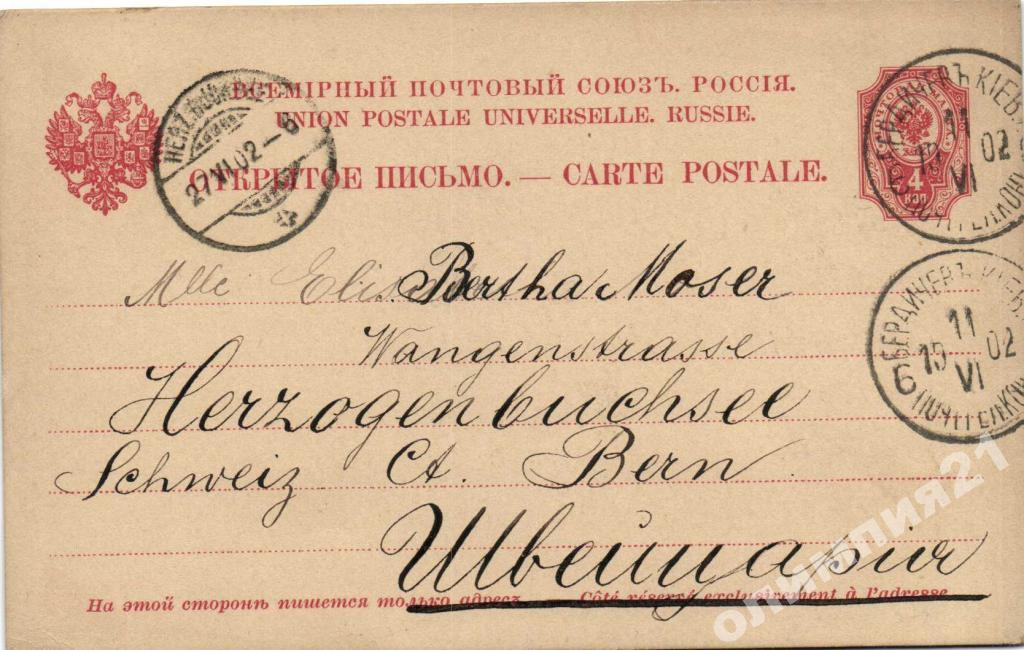 ВСЕМІРНЫЙ ПОЧТОВЫЙ СОЮЗЪ. РОССІЯ.
UNION POSTALE UNIVERSELLE. RUSSIE.
ОТКРЫТОЕ ПИСЬМО. — CARTE POSTALE.
27 VI 02 - 6
4
КОП
КІЕВ
11
15 02
VI
Mlle Bertha Moser
Wangenstrasse
Herzogenbuchsee
Schweiz Ct. Bern
Швейцарія
БЕРДИЧЕВЪ КІЕВ.
11
15 02
VI
6
На этой сторонѣ пишется только адресъ. Côté réservé exclusivement à l'adresse.
олимпия21